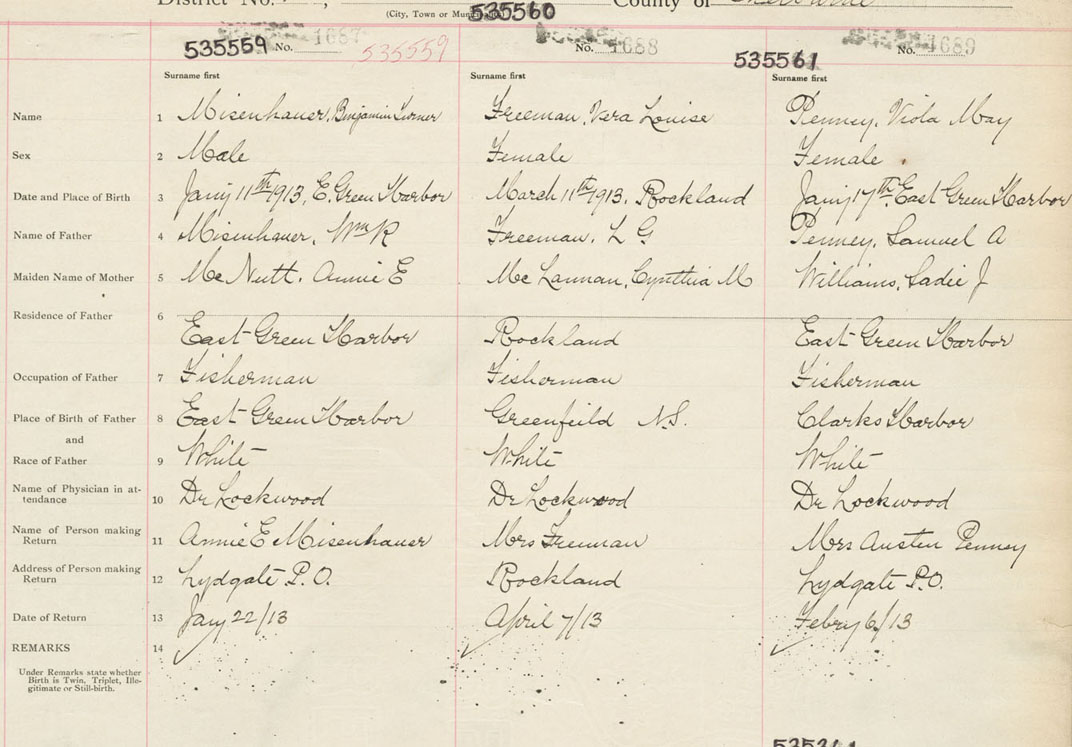 District No. , County of Shelburne
(City, Town or Mun
535560
535559 No. 1687 535559 No. 1688 535561 No. 1689
Surname first Surname first Surname first
Name 1 Misenhauer, Benjamin Freeman, Vera Louise Penney, Viola May
Sex 2 Male Female Female
Date and Place of Birth 3 Jany 11th 1913, E. Green Harbor March 11th 1913, Rockland Jany 17th, East Green Harbor
Name of Father 4 Misenhauer, Wm R Freeman, L G Penney, Samuel A
Maiden Name of Mother 5 McNutt, Annie E McLannan, Cynthia M Williams, Sadie J
Residence of Father 6
East Green Harbor Rockland East Green Harbor
Occupation of Father 7 Fisherman Fisherman Fisherman
Place of Birth of Father 8 East Green Harbor Greenfeild N.S. Clarks Harbor
and
Race of Father 9 White White White
Name of Physician in at-
tendance 10 Dr Lockwood Dr Lockwood Dr Lockwood
Name of Person making
Return 11 Annie E Misenhauer Mrs Freeman Mrs Austen Penney
Address of Person making
Return 12 Lydgate P.O. Rockland Lydgate P.O.
Date of Return 13 Jany 22/13 April 7/13 Febry 6/13
REMARKS 14
Under Remarks state whether
Birth is Twin, Triplet, Ille-
gitimate or Still-birth.